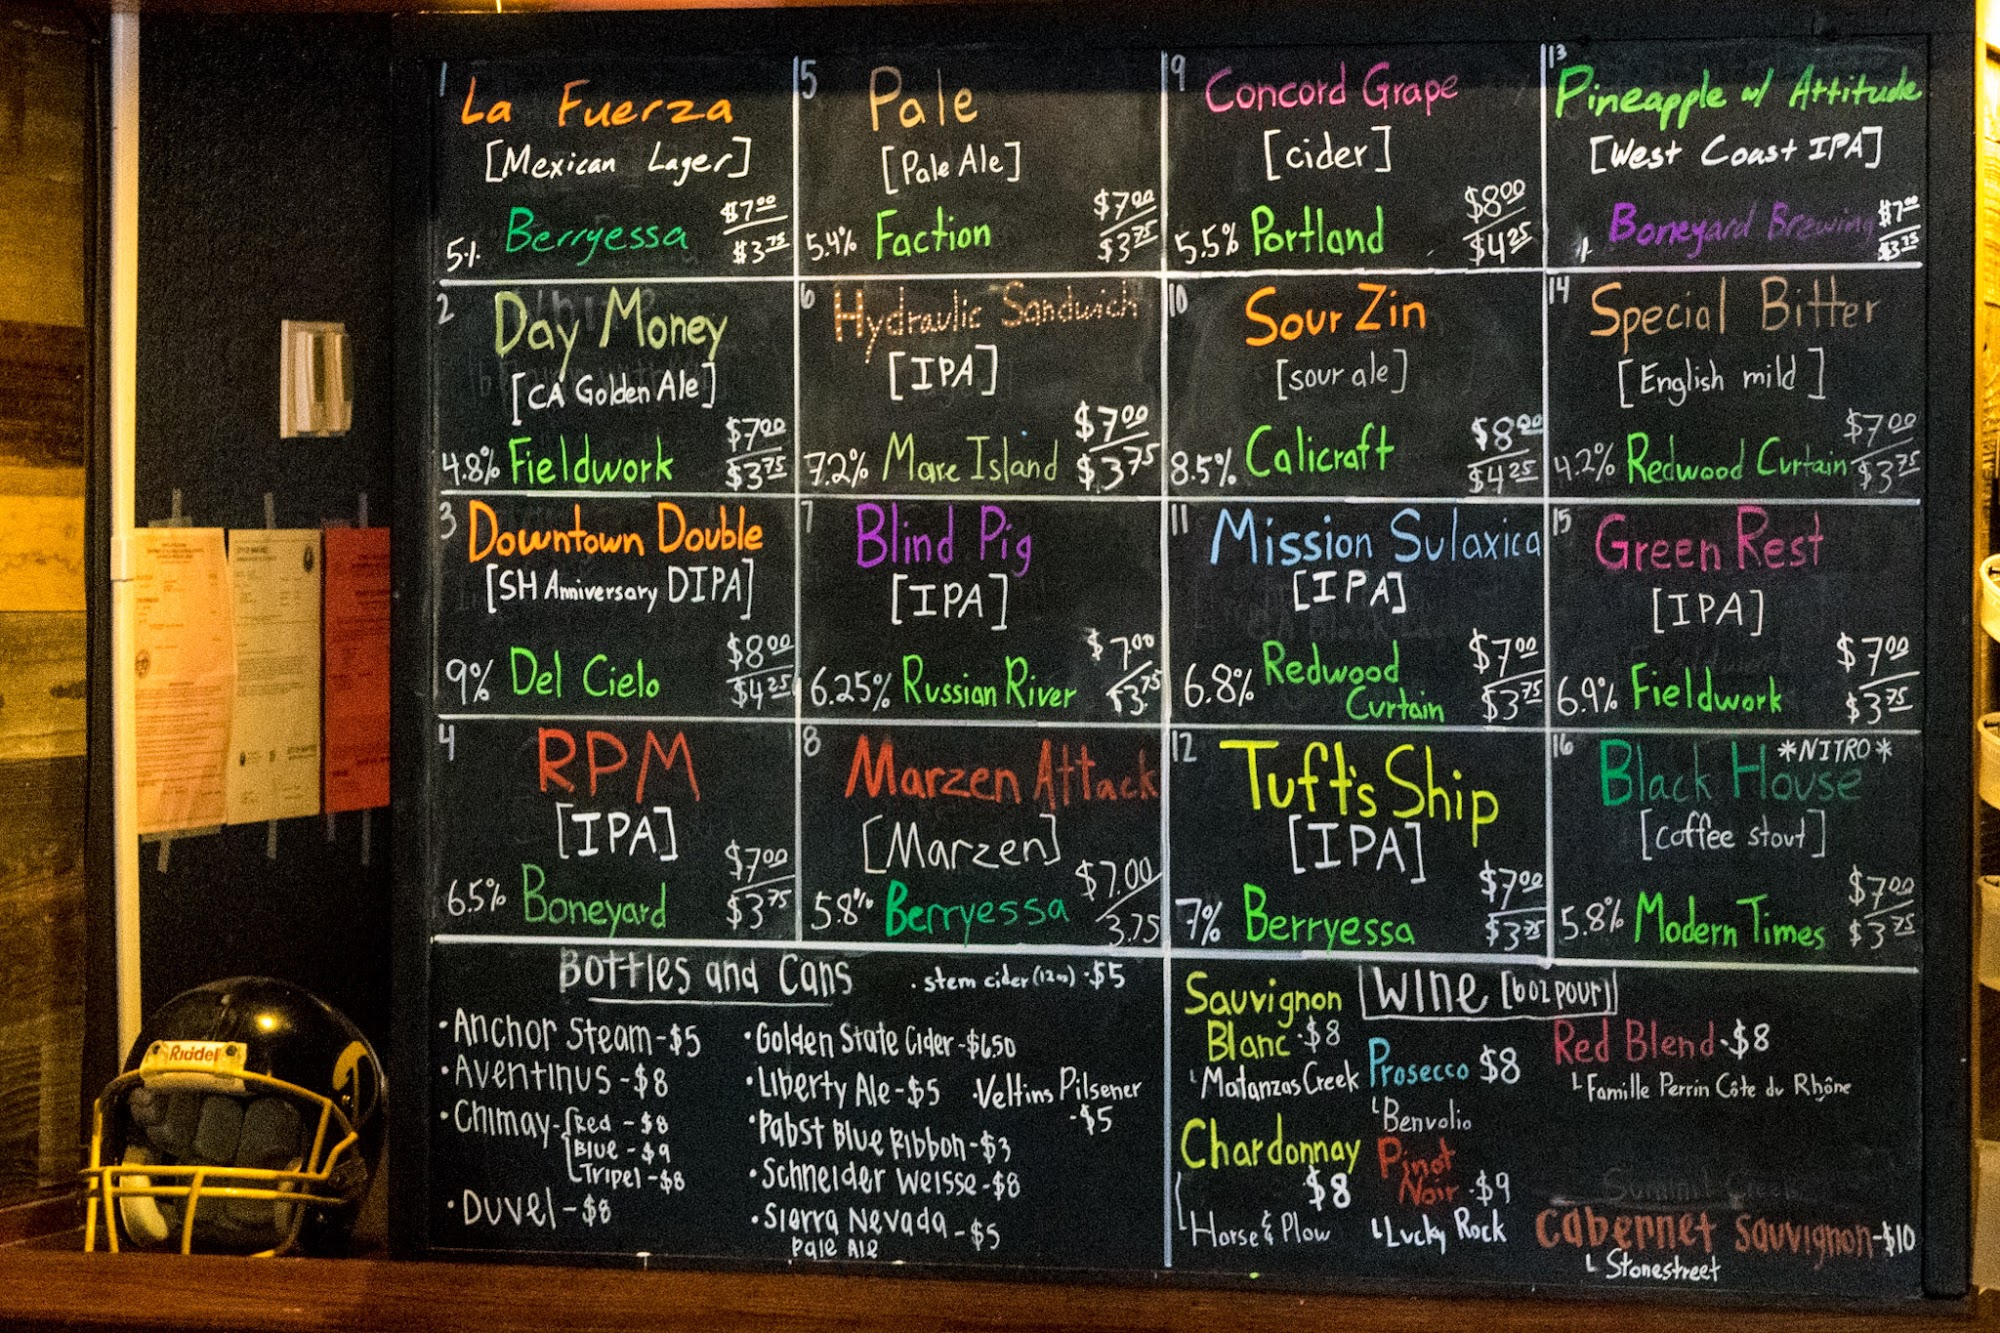 1
La Fuerza
[Mexican Lager]
5% Berryessa $7.00
$3.75
5
Pale
[Pale Ale]
5.4% Faction $7.00
$3.75
9
Concord Grape
[cider]
5.5% Portland $8.00
$4.25
13
Pineapple w/ Attitude
[West Coast IPA]
% Boneyard Brewing $7.00
$3.75
2
Day Money
[CA Golden Ale]
4.8% Fieldwork $7.00
$3.75
6
Hydraulic Sandwich
[IPA]
7.2% Mare Island $7.00
$3.75
10
Sour Zin
[sour ale]
8.5% Calicraft $8.00
$4.25
14
Special Bitter
[English mild]
4.2% Redwood Curtain $7.00
$3.75
3
Downtown Double
[SH Anniversary DIPA]
9% Del Cielo $8.00
$4.25
7
Blind Pig
[IPA]
6.25% Russian River $7.00
$3.75
11
Mission Sulaxica
[IPA]
6.8% Redwood
Curtain $7.00
$3.75
15
Green Rest
[IPA]
6.9% Fieldwork $7.00
$3.75
4
RPM
[IPA]
6.5% Boneyard $7.00
$3.75
8
Marzen Attack
[Marzen]
5.8% Berryessa $7.00
3.75
12
Tuft's Ship
[IPA]
7% Berryessa $7.00
$3.75
16
*NITRO*
Black House
[coffee stout]
5.8% Modern Times $7.00
$3.75
Bottles and Cans
· stem cider (12oz) - $5
· Anchor Steam - $5
· Aventinus - $8
· Chimay - Red - $8
Blue - $9
Tripel - $8
· Duvel - $8
· Golden State Cider - $6.50
· Liberty Ale - $5
· Veltins Pilsener
- $5
· Pabst Blue Ribbon - $3
· Schneider Weisse - $8
· Sierra Nevada - $5
Pale Ale
Wine [6oz pour]
Sauvignon
Blanc - $8
Matanzas Creek
Chardonnay
$8
Horse & Plow
Prosecco $8
Benvolio
Pinot
Noir - $9
Lucky Rock
Red Blend - $8
Famille Perrin Côte du Rhône
Cabernet Sauvignon - $10
Stonestreet
Riddell